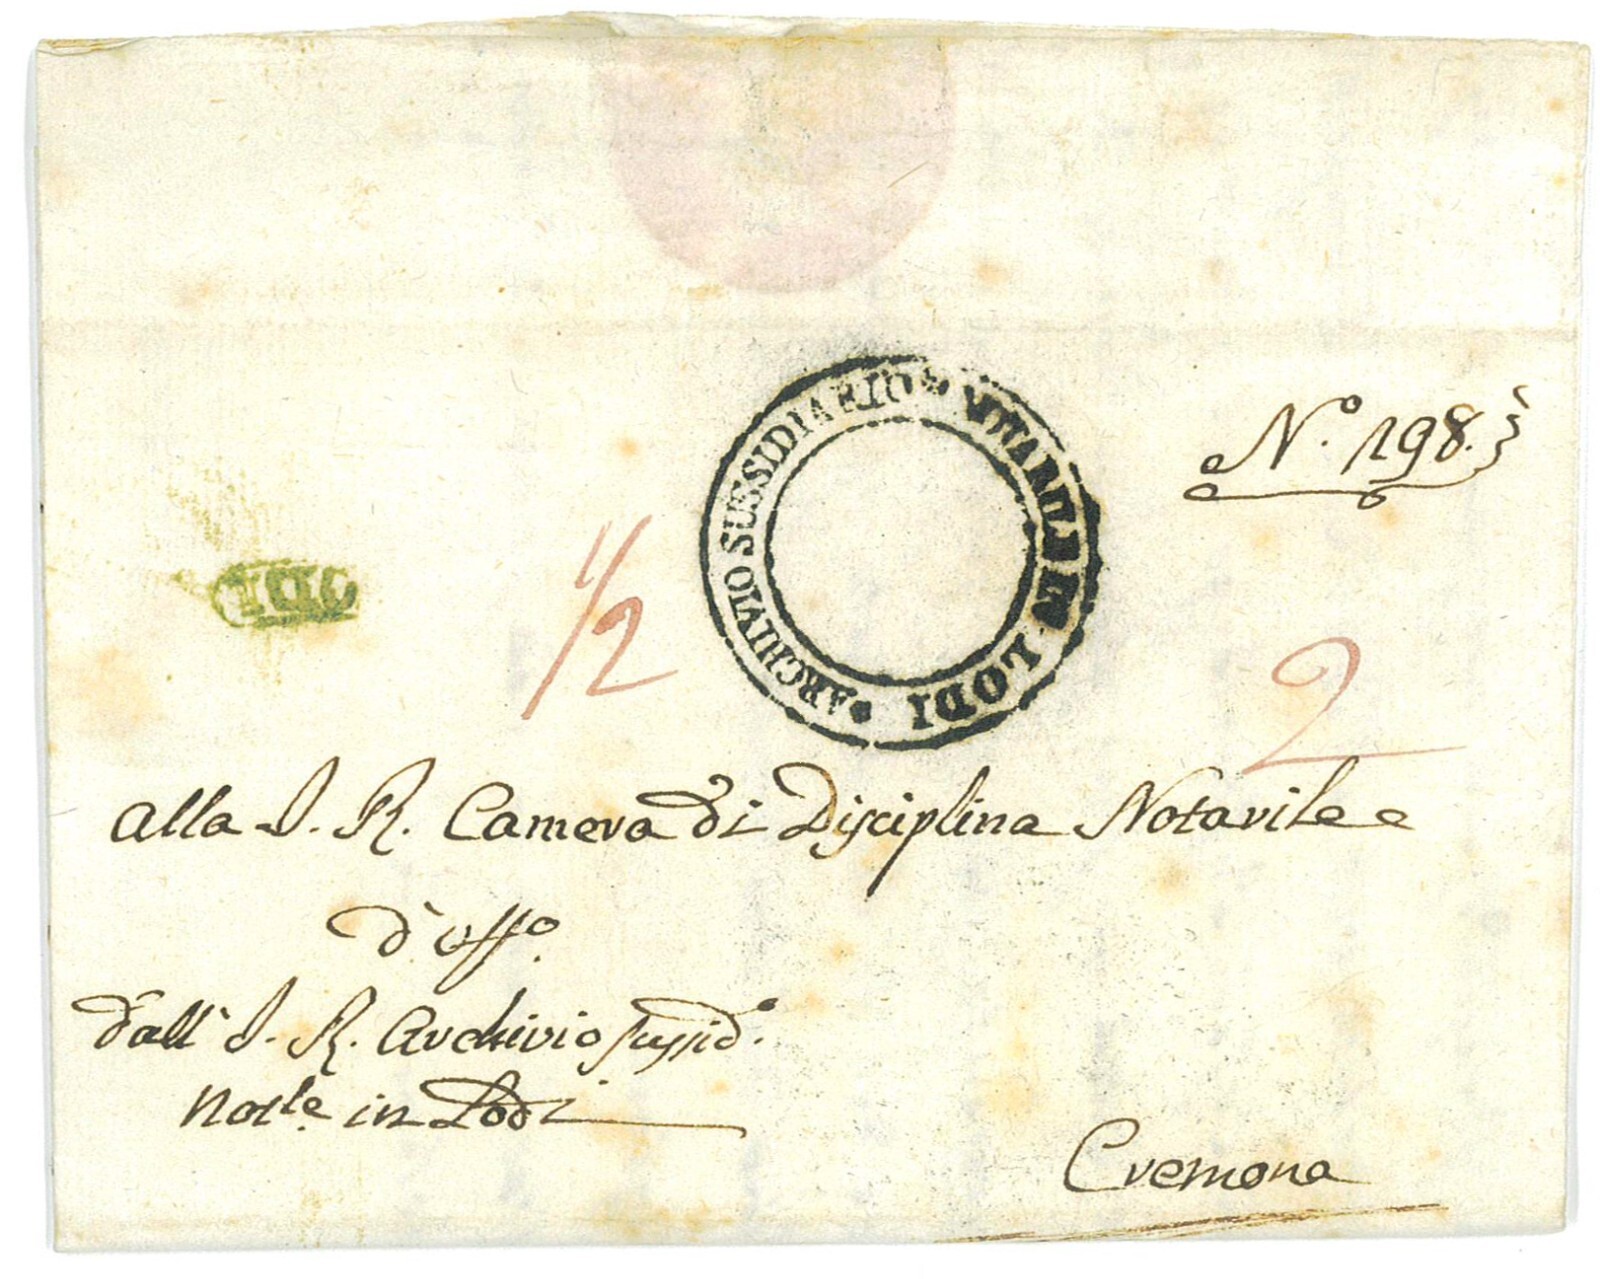 N.º 198.
ARCHIVIO SUSSIDIARIO NOTARILE IN LODI
LODI
1/2
2
alla I. R. Camera di Disciplina Notarile
d'uff.º
dall' I. R. Archivio sussid.º
Not.le in Lodi
Cremona